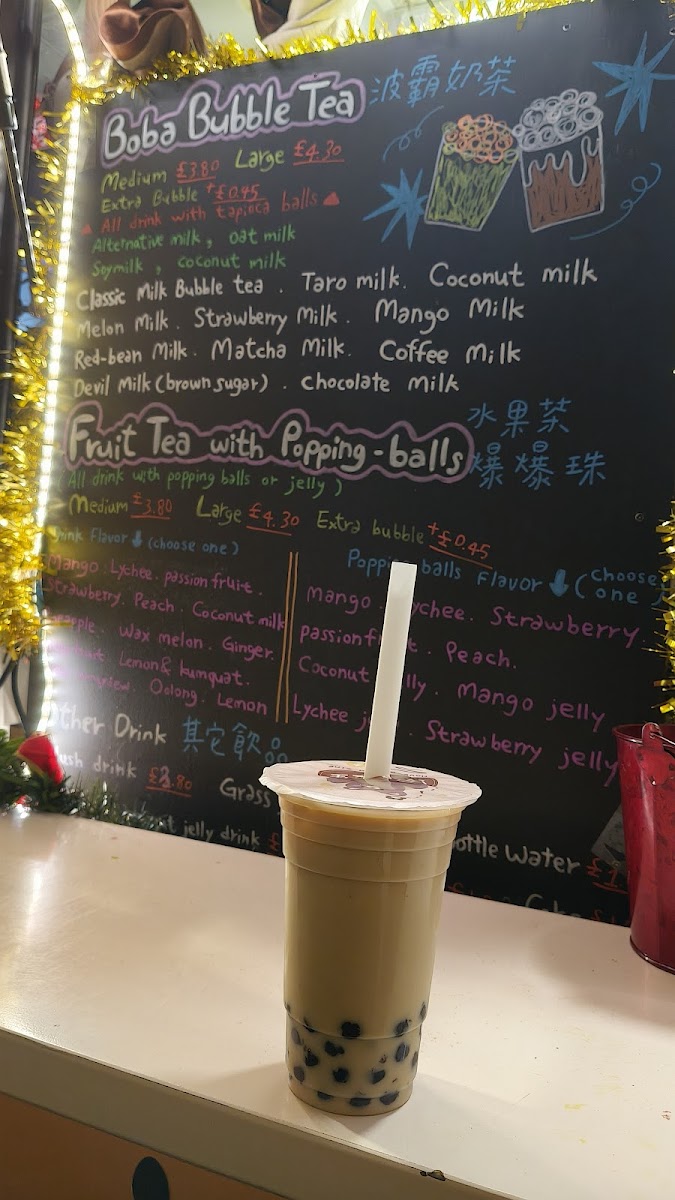 Boba Bubble Tea 波霸奶茶
Medium £3.80 Large £4.30
Extra Bubble +£0.45
All drink with tapioca balls
Alternative milk, oat milk
Soymilk, coconut milk
Classic Milk Bubble tea. Taro milk. Coconut milk
Melon Milk. Strawberry Milk. Mango Milk
Red-bean Milk. Matcha Milk. Coffee Milk
Devil Milk (brown sugar). Chocolate Milk
Fruit Tea with Popping-balls 水果茶
爆爆珠
(All drink with popping balls or jelly)
Medium £3.80 Large £4.30 Extra bubble +£0.45
Flavor ↓ (choose one)
Mango. Lychee. passion fruit.
Strawberry. Peach. Coconut milk
wax melon. Ginger.
Lemon & kumquat.
Oolong. Lemon
balls Flavor ↓ (choose one)
mango. Strawberry.
Peach.
Coconut mango jelly
Lychee Strawberry jelly
Drink 其它飲
drink £3.80 Grass
jelly drink
Water